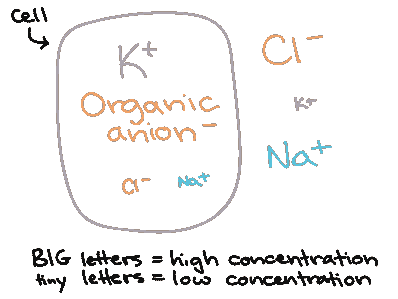 cell
K⁺
Organic
anion⁻
Cl⁻ Na⁺
Cl⁻
K⁺
Na⁺
BIG letters = high concentration
tiny letters = low concentration